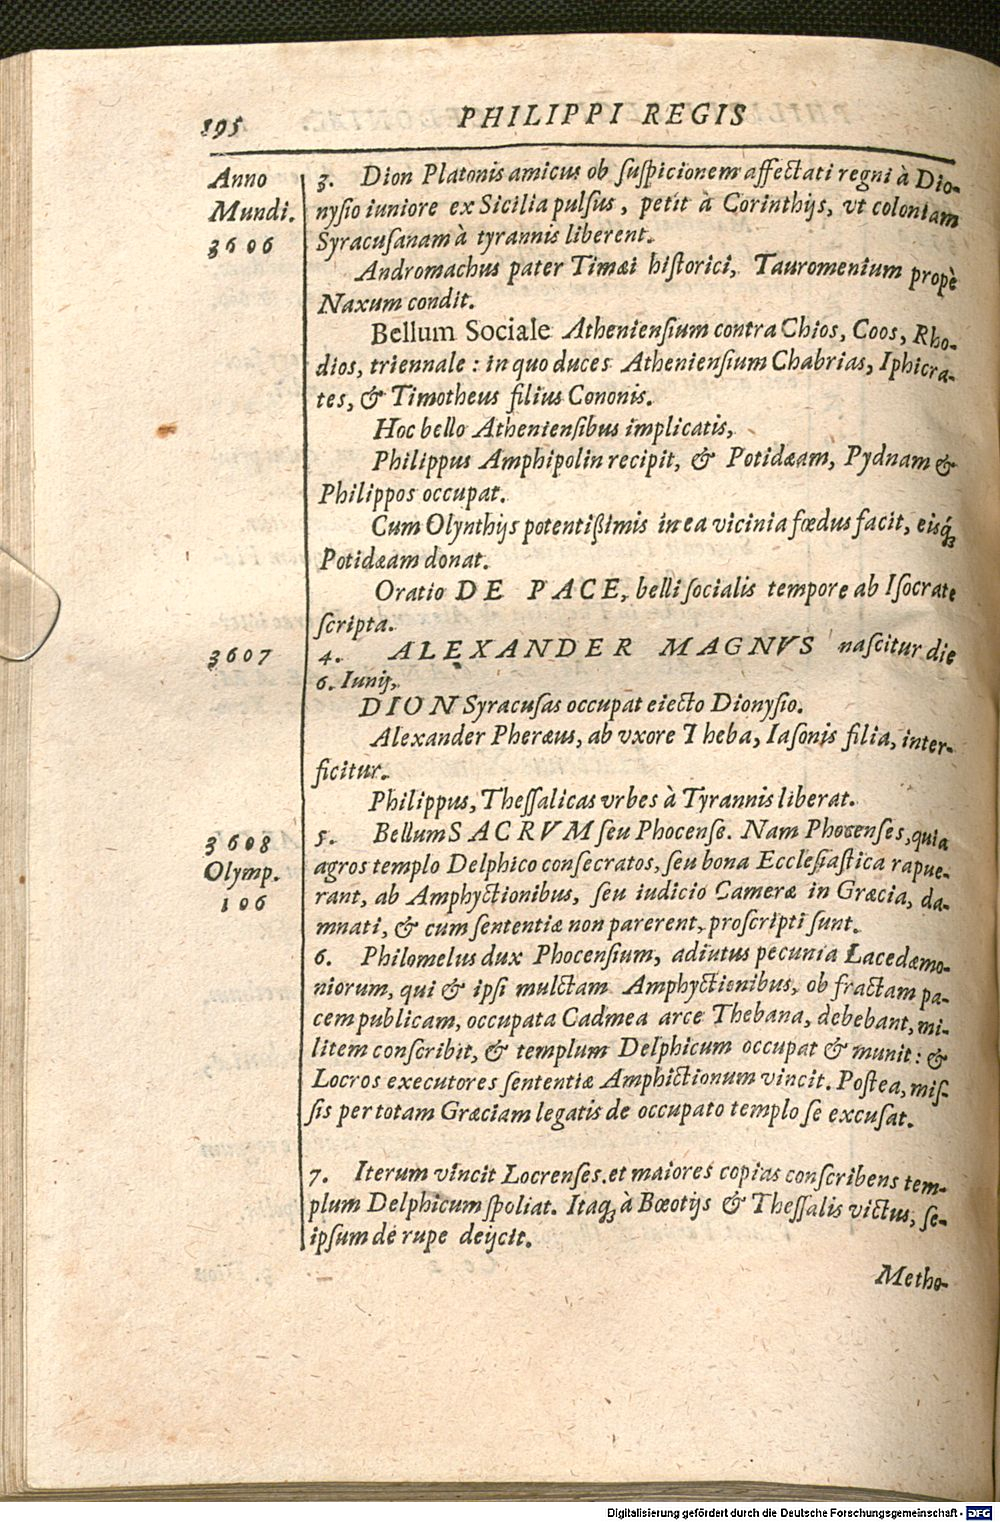 195 PHILIPPI REGIS
Anno
Mundi.
3606
3. Dion Platonis amicus ob ſuſpicionem affectati regni à Dio-
nyſio iuniore ex Sicilia pulſus, petit à Corinthijs, vt coloniam
Syracuſanam à tyrannis liberent.
Andromachus pater Timæi hiſtorici, Tauromenium propè
Naxum condit.
Bellum Sociale Athenienſium contra Chios, Coos, Rho-
dios, triennale: in quo duces Athenienſium Chabrias, Iphicra-
tes, & Timotheus filius Cononis.
Hoc bello Athenienſibus implicatis,
Philippus Amphipolin recipit, & Potidæam, Pydnam &
Philippos occupat.
Cum Olynthijs potentißimis in ea vicinia fœdus facit, eisq́ꝫ
Potidæam donat.
Oratio DE PACE, belli ſocialis tempore ab Iſocrate
ſcripta.
3607
4. ALEXANDER MAGNVS naſcitur die
6. Iunij,
DION Syracuſas occupat eiecto Dionyſio.
Alexander Pheræus, ab vxore Theba, Iaſonis filia, inter-
ficitur.
Philippus, Theſſalicas vrbes à Tyrannis liberat.
3608
Olymp.
106
5. Bellum SACRVM ſeu Phocenſe. Nam Phocenſes, quia
agros templo Delphico conſecratos, ſeu bona Eccleſiaſtica rapue-
rant, ab Amphyctionibus, ſeu iudicio Cameræ in Græcia, da-
mnati, & cum ſententiæ non parerent, proſcripti ſunt.
6. Philomelus dux Phocenſium, adiutus pecunia Lacedæmo-
niorum, qui & ipſi mulctam Amphyctionibus, ob fractam pa-
cem publicam, occupata Cadmea arce Thebana, debebant, mi-
litem conſcribit, & templum Delphicum occupat & munit: &
Locros executores ſententiæ Amphictionum vincit. Poſtea, miſ-
ſis per totam Græciam legatis de occupato templo ſe excuſat.
7. Iterum vincit Locrenſes. et maiores copias conſcribens tem-
plum Delphicum ſpoliat. Itaqꝫ à Bœotijs & Theſſalis victus, ſe-
ipſum de rupe deijcit.
Metho-
Digitalisierung gefördert durch die Deutsche Forschungsgemeinschaft - DFG